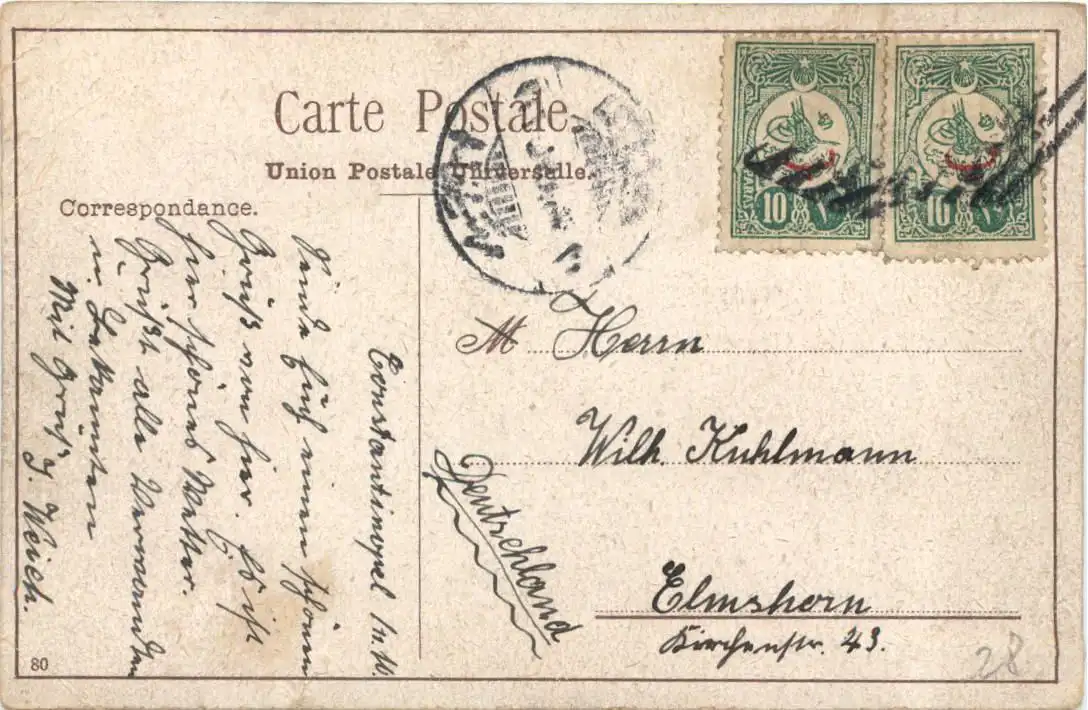 Carte Postale
Union Postale Universelle.
Correspondance.
Constantinopel
Sende Euch einen schönen
Gruß von hier. Es ist
hier schönes Wetter.
Grüßt alle Verwandten
u. Bekannten
Mit Gruß
J. Weich.
M Herrn
Wilh. Kuhlmann
Deutschland
Elmshorn
Kirchenstr. 43.
10 PARAS ١٠
10 PARAS ١٠
80
28